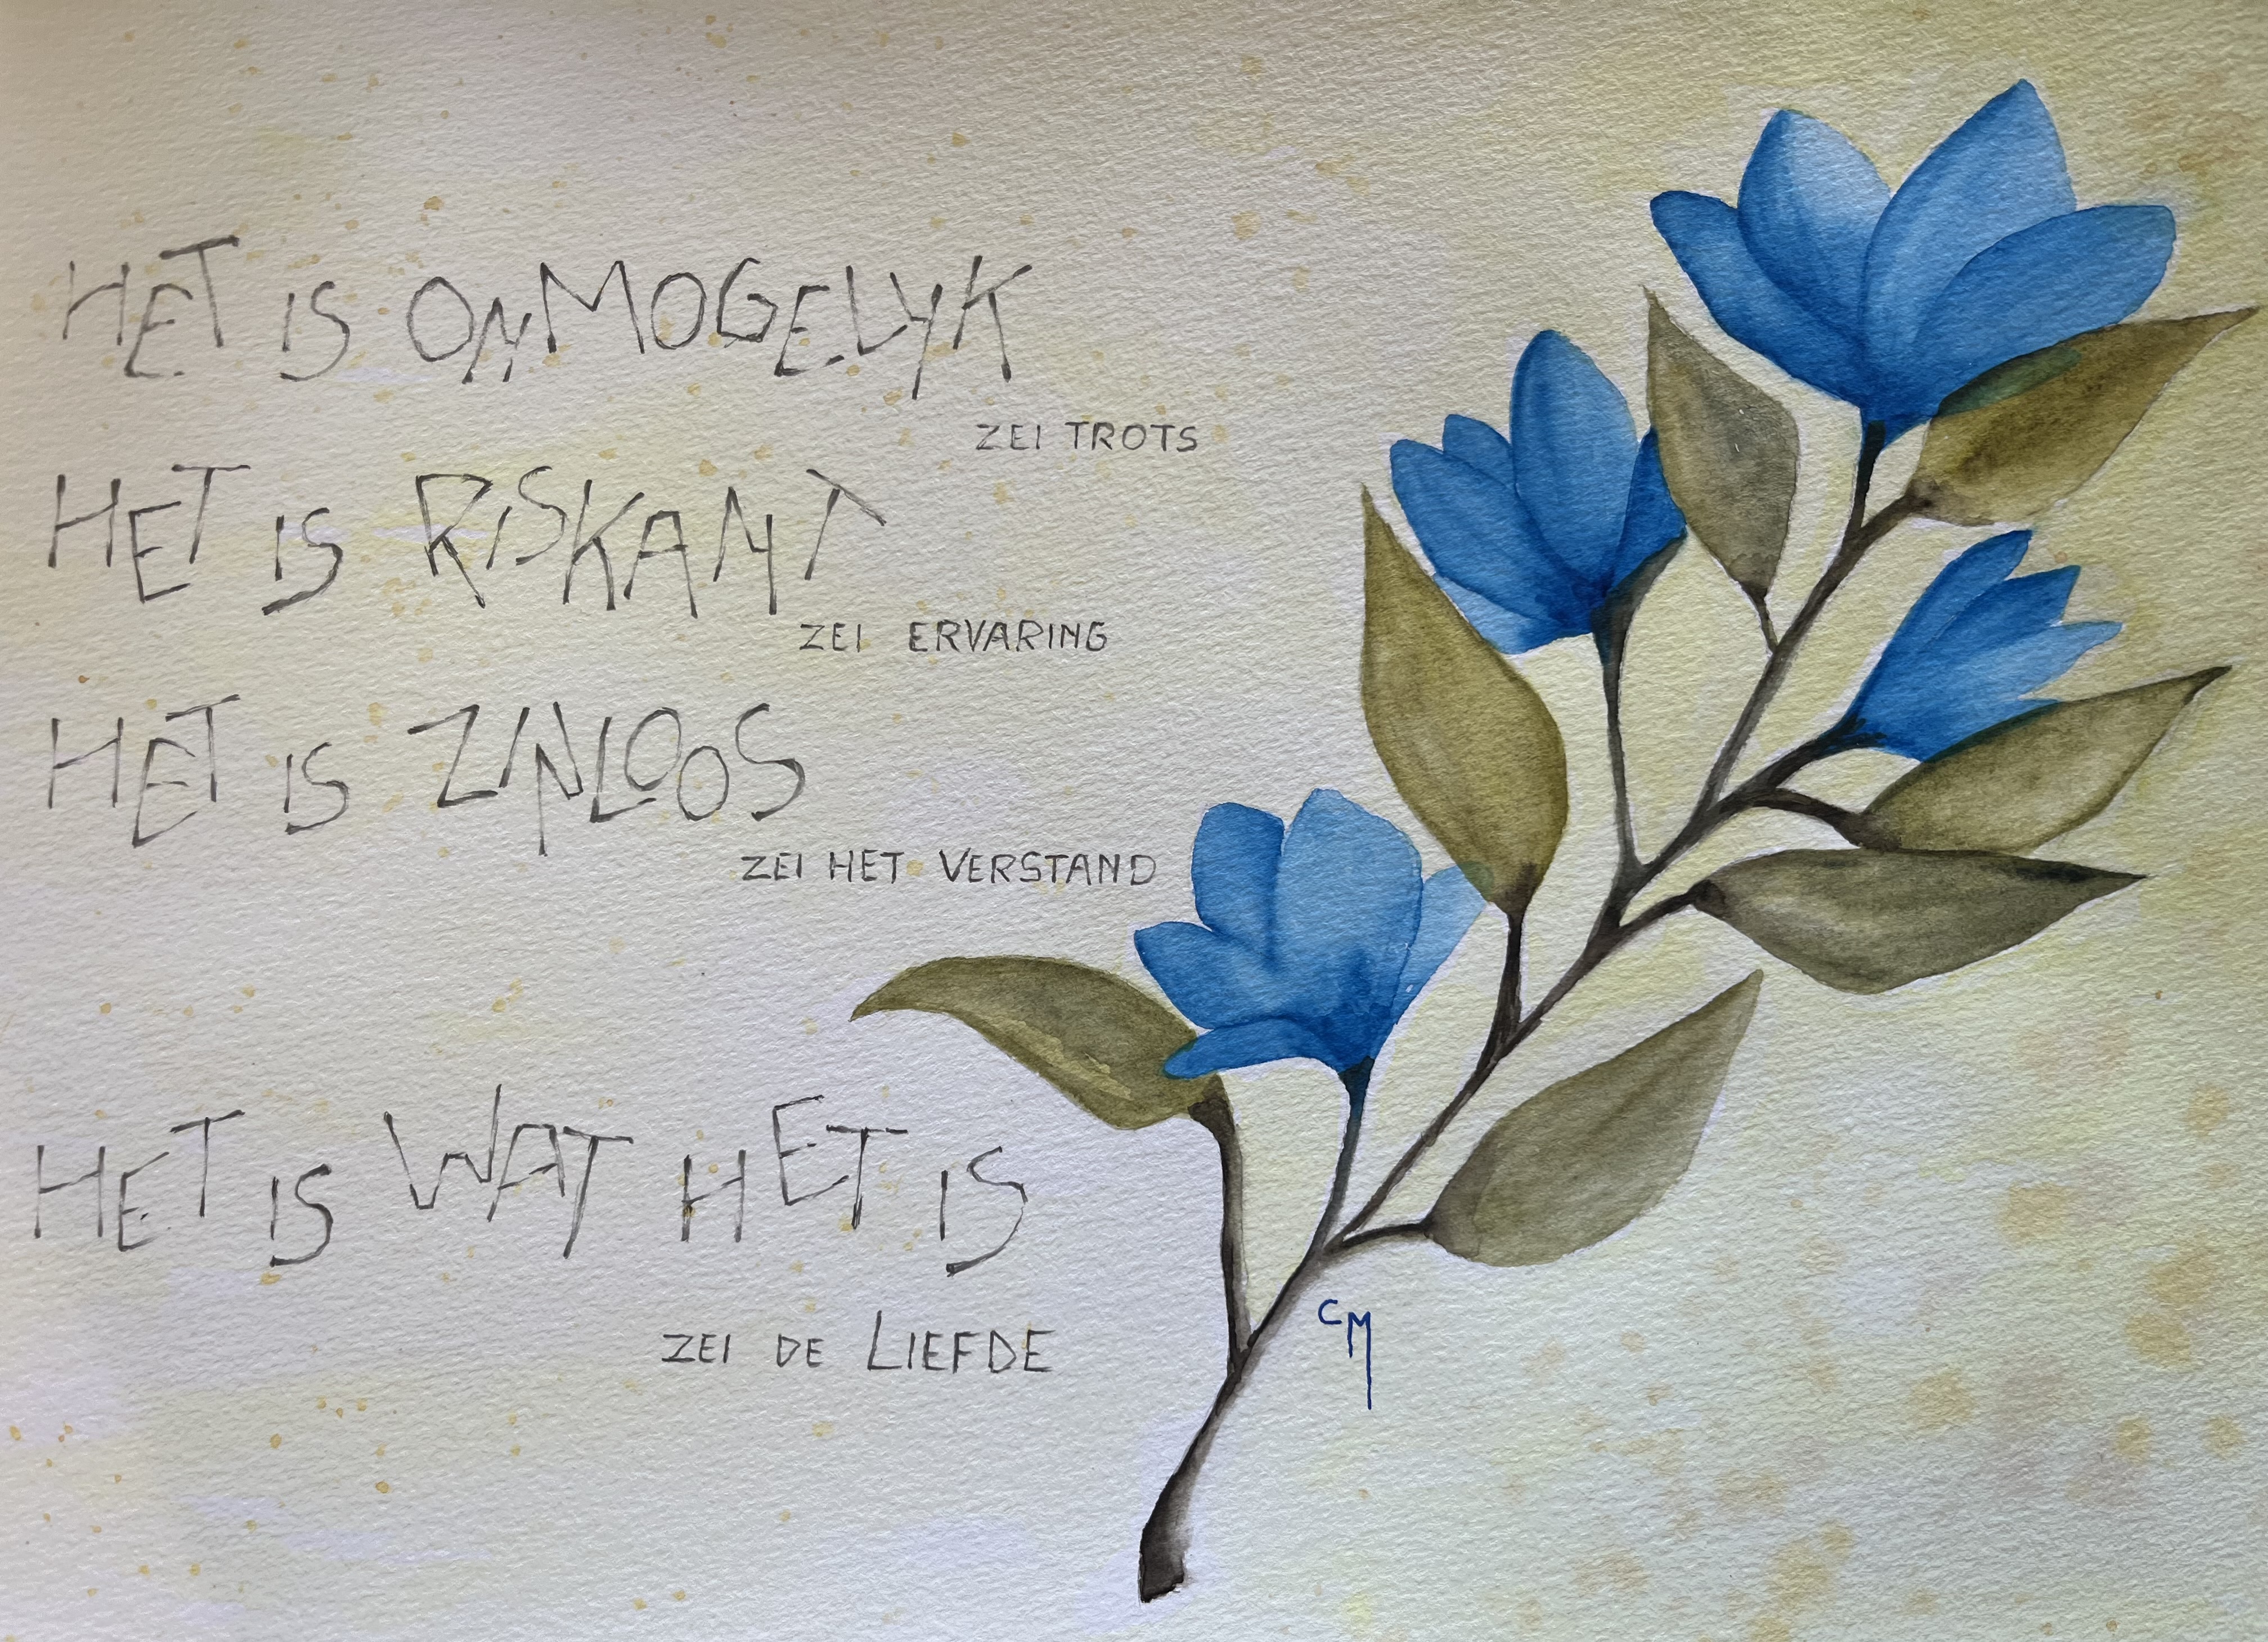 HET IS ONMOGELYK
ZEI TROTS
HET IS RISKANT
ZEI ERVARING
HET IS ZINLOOS
ZEI HET VERSTAND
HET IS WAT HET IS
ZEI DE LIEFDE
CM